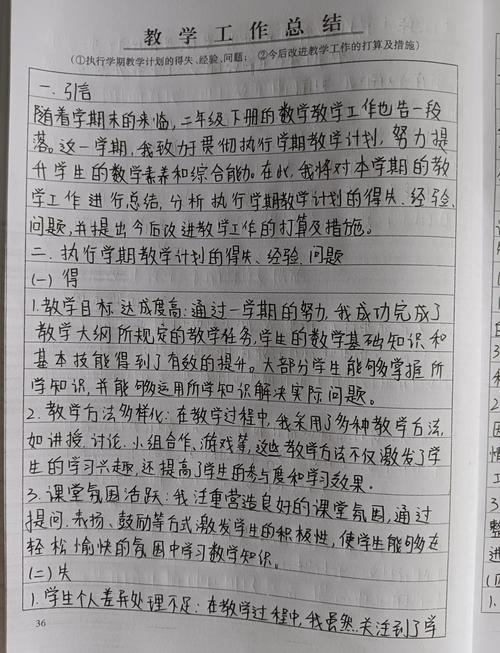 教学工作总结
(①执行学期教学计划的得失、经验、问题; ②今后改进教学工作的打算及措施)
一. 引言
随着学期末的来临,二年级下册的数学教学工作也告一段
落。这一学期,我致力于贯彻执行学期教学计划,努力提
升学生的数学素养和综合能力。在此,我将对本学期的教
学工作进行总结,分析执行学期教学计划的得失、经验、
问题,并提出今后改进教学工作的打算及措施。
二、执行学期教学计划的得失、经验、问题
(一) 得
1.教学目标达成度高:通过一学期的努力,我成功完成了
教学大纲所规定的教学任务,学生的数学基础知识和
基本技能得到了有效的提升。大部分学生能够掌握所
学知识,并能够运用所学知识解决实际问题。
2.教学方法多样化:在教学过程中,我采用了多种教学方法,
如讲授、讨论、小组合作、游戏等,这些教学方法不仅激发了学
生的学习兴趣,还提高了学生的参与度和学习效果。
3.课堂氛围活跃:我注重营造良好的课堂氛围,通过
提问、表扬、鼓励等方式激发学生的积极性,使学生能够在
轻松愉快的氛围中学习数学知识。
(二) 失
1.学生个人差异处理不足:在教学过程中,我虽然关注到了学
36